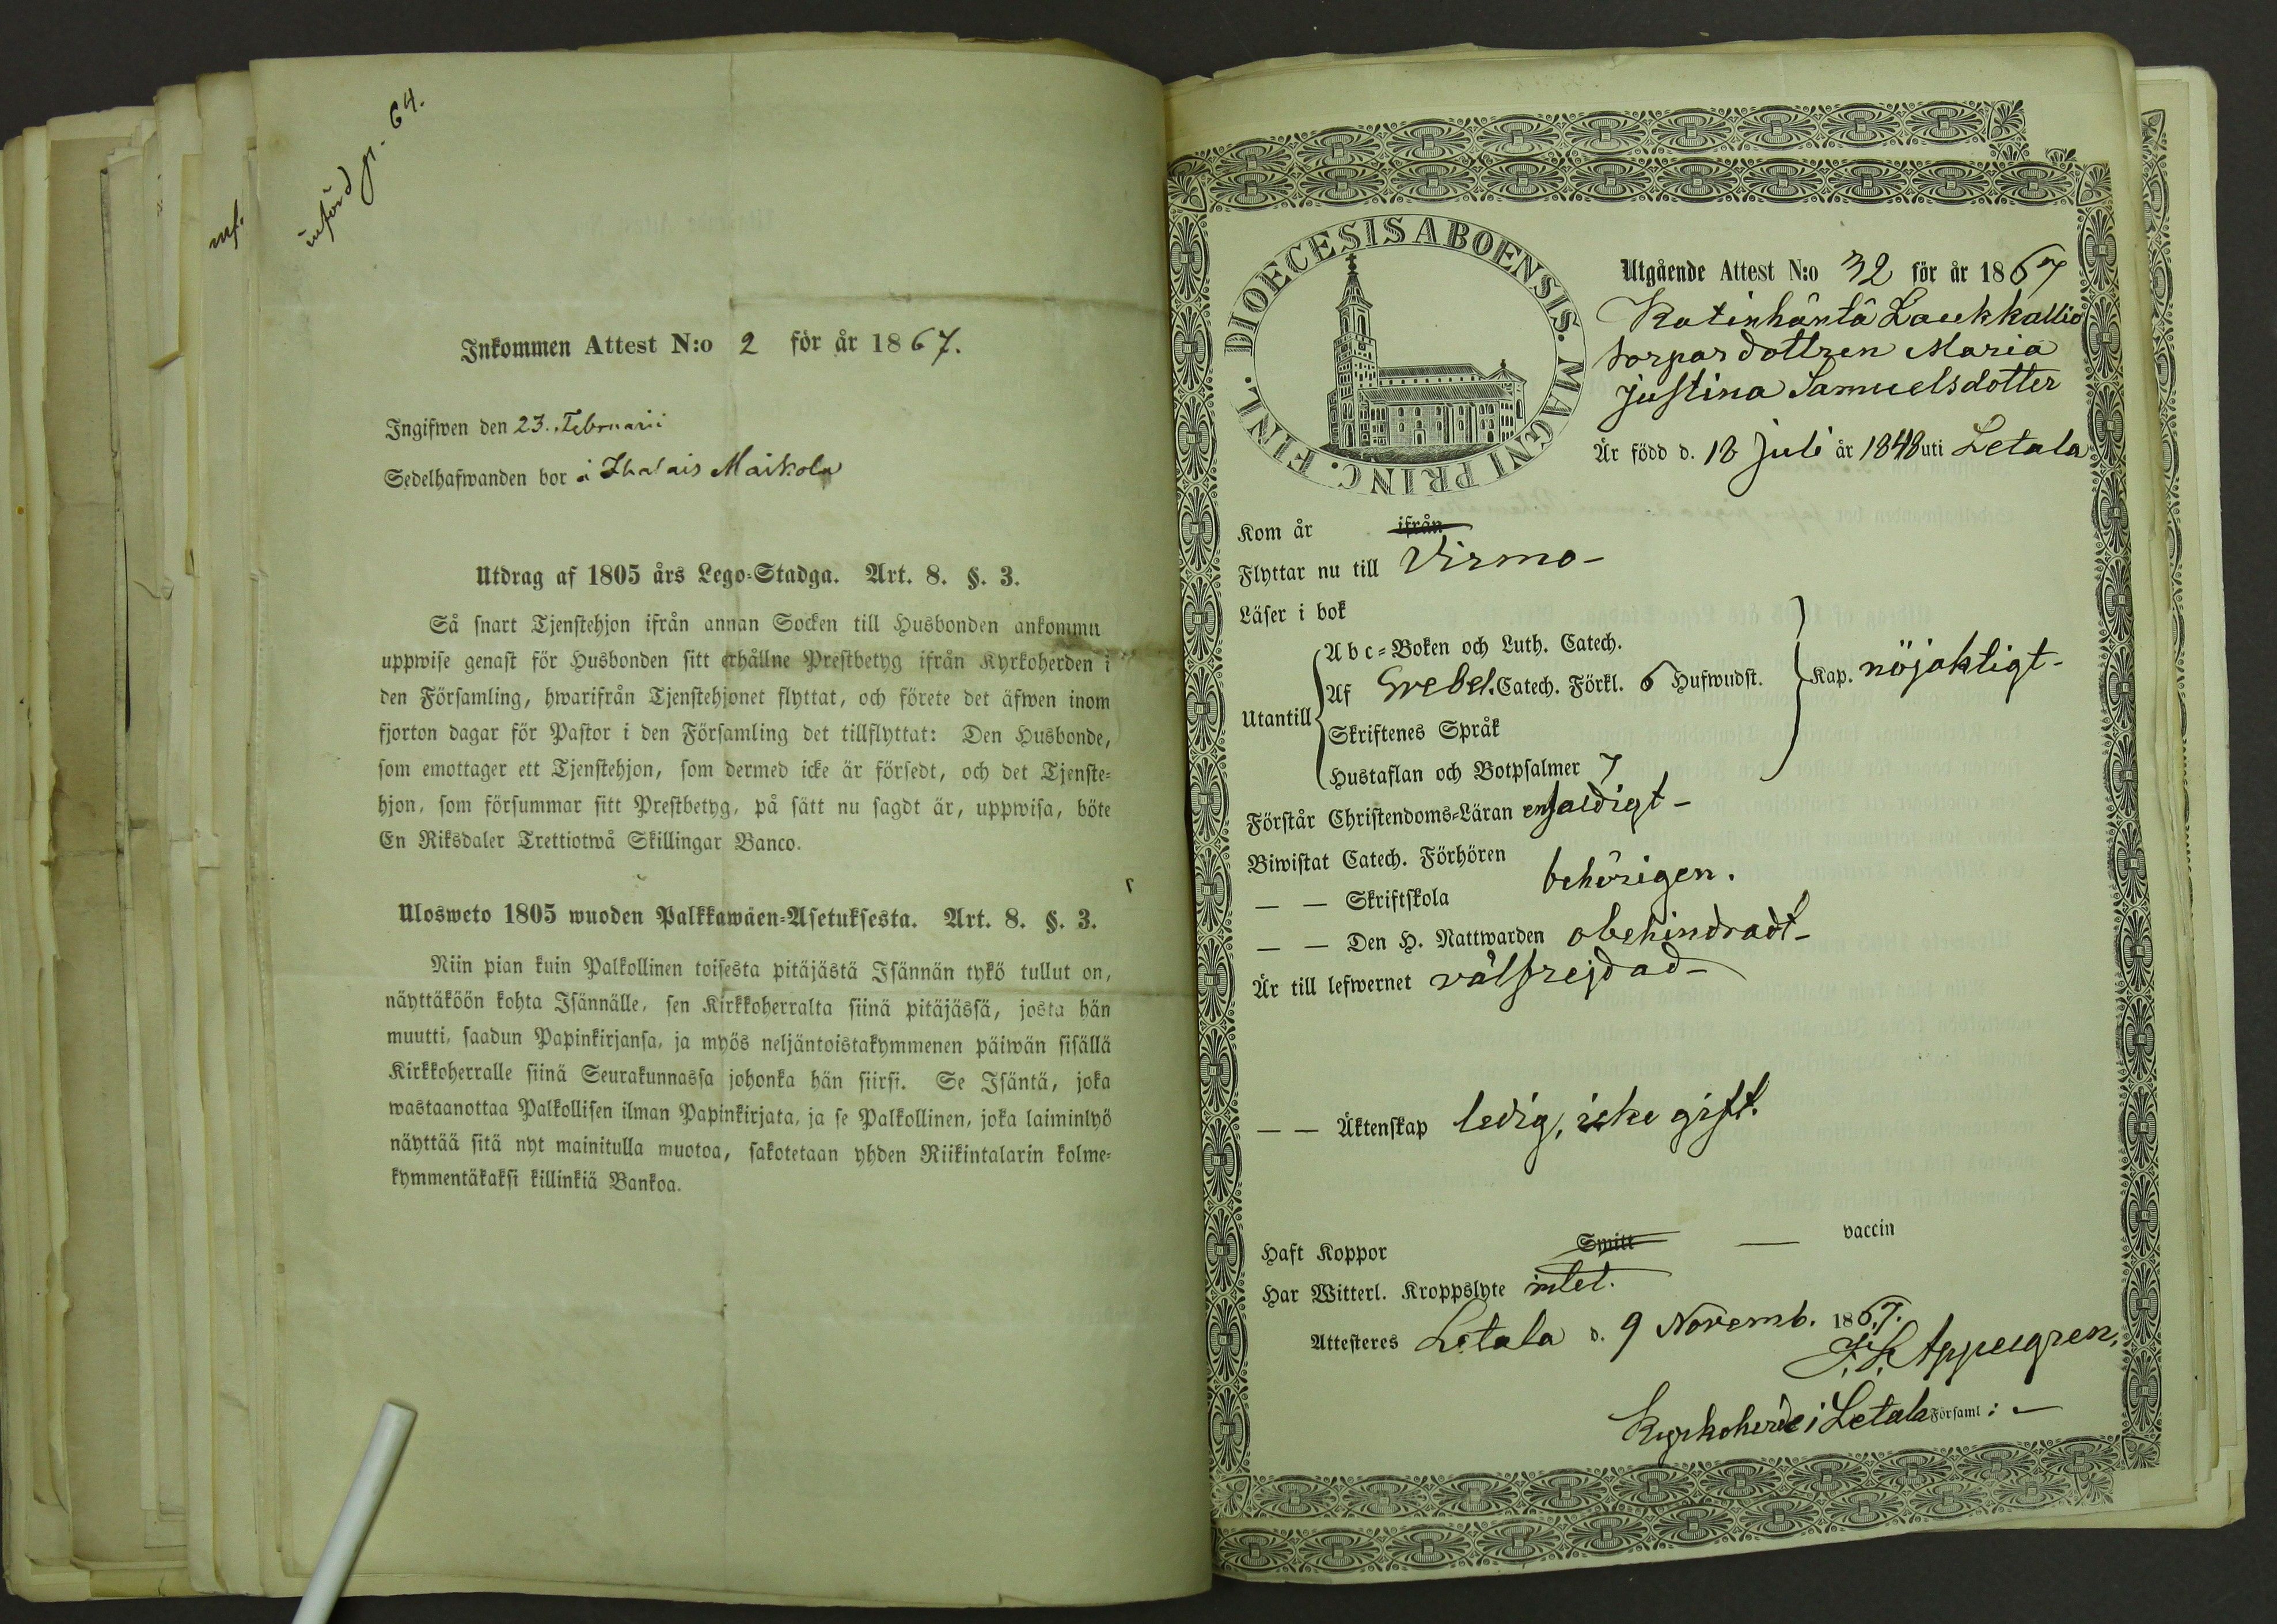 införd p. 64.
Inkommen Attest N:o 2 för år 1867.
Ingifwen den 23. Februarii
Sedelhafwanden bor i Ihalais Maikola
Utdrag af 1805 års Lego-Stadga. Art. 8. §. 3.
Så snart Tjenstehjon ifrån annan Socken till Husbonden ankommit
uppwise genast för Husbonden sitt erhållne Prestbetyg ifrån Kyrkoherden i
den Församling, hwarifrån Tjenstehjonet flyttat, och förete det äfwen inom
fjorton dagar för Pastor i den Församling det tillflyttat: Den Husbonde,
som emottager ett Tjenstehjon, som dermed icke är försedt, och det Tjenste-
hjon, som försummar sitt Prestbetyg, på sätt nu sagdt är, uppwisa, böte
En Riksdaler Trettiotwå Skillingar Banco.
Ulosweto 1805 wuoden Palkkawäen-Asetuksesta. Art. 8. §. 3.
Niin pian kuin Palkollinen toisesta pitäjästä Isännän tykö tullut on,
näyttäköön kohta Isännälle, sen Kirkkoherralta siinä pitäjässä, josta hän
muutti, saadun Papinkirjansa, ja myös neljäntoistakymmenen päiwän sisällä
Kirkkoherralle siinä Seurakunnassa johonka hän siirsi. Se Isäntä, joka
wastaanottaa Palkollisen ilman Papinkirjata, ja se Palkollinen, joka laiminlyö
näyttää sitä nyt mainitulla muotoa, sakotetaan yhden Riikintalarin kolme-
kymmentäkaksi killinkiä Bankoa.
DIOECESIS ABOENSIS. MAGNI PRINC. FINL.
Utgående Attest N:o 32 för år 1867
Katinhäntä Laukkallio
torpardottren Maria
Justina Samuelsdotter
Är född d. 18 Juli år 1848 uti Letala
Kom år ifrån
Flyttar nu till Virmo-
Läser i bok
Utantill
Abc-Boken och Luth. Catech.
Af Grebel. Catech. Förkl. 6 Hufwudst.
Skriftenes Språk
Hustaflan och Botpsalmer 7
Kap. nöjaktigt-
Förstår Christendoms-Läran enfaldigt-
Biwistat Catech. Förhören
— — Skriftskola behörigen.
— — Den H. Nattwarden obehindradt-
Är till lefwernet välfrejdad-
— — Äktenskap ledig, icke gift.
Haft Koppor Smitt — vaccin
Har Witterl. Kroppslyte intet.
Attesteres Letala d. 9 Novemb. 1867.
F. F. Appelgren,
Kyrkoherde i Letala Församl: -